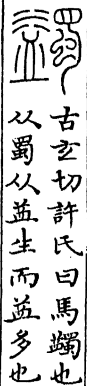 蠲
古玄切許氏曰馬蠲也
从蜀从益生而益多也